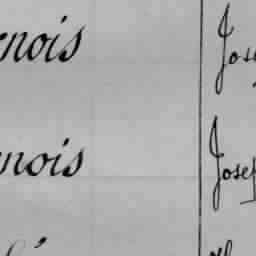 nois Jose
nois Josep